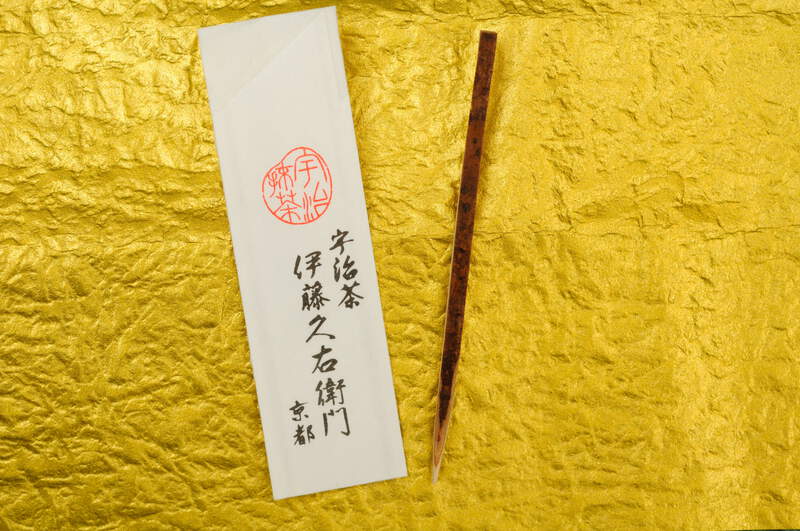 宇治抹茶
宇治茶
伊藤久右衛門
京都